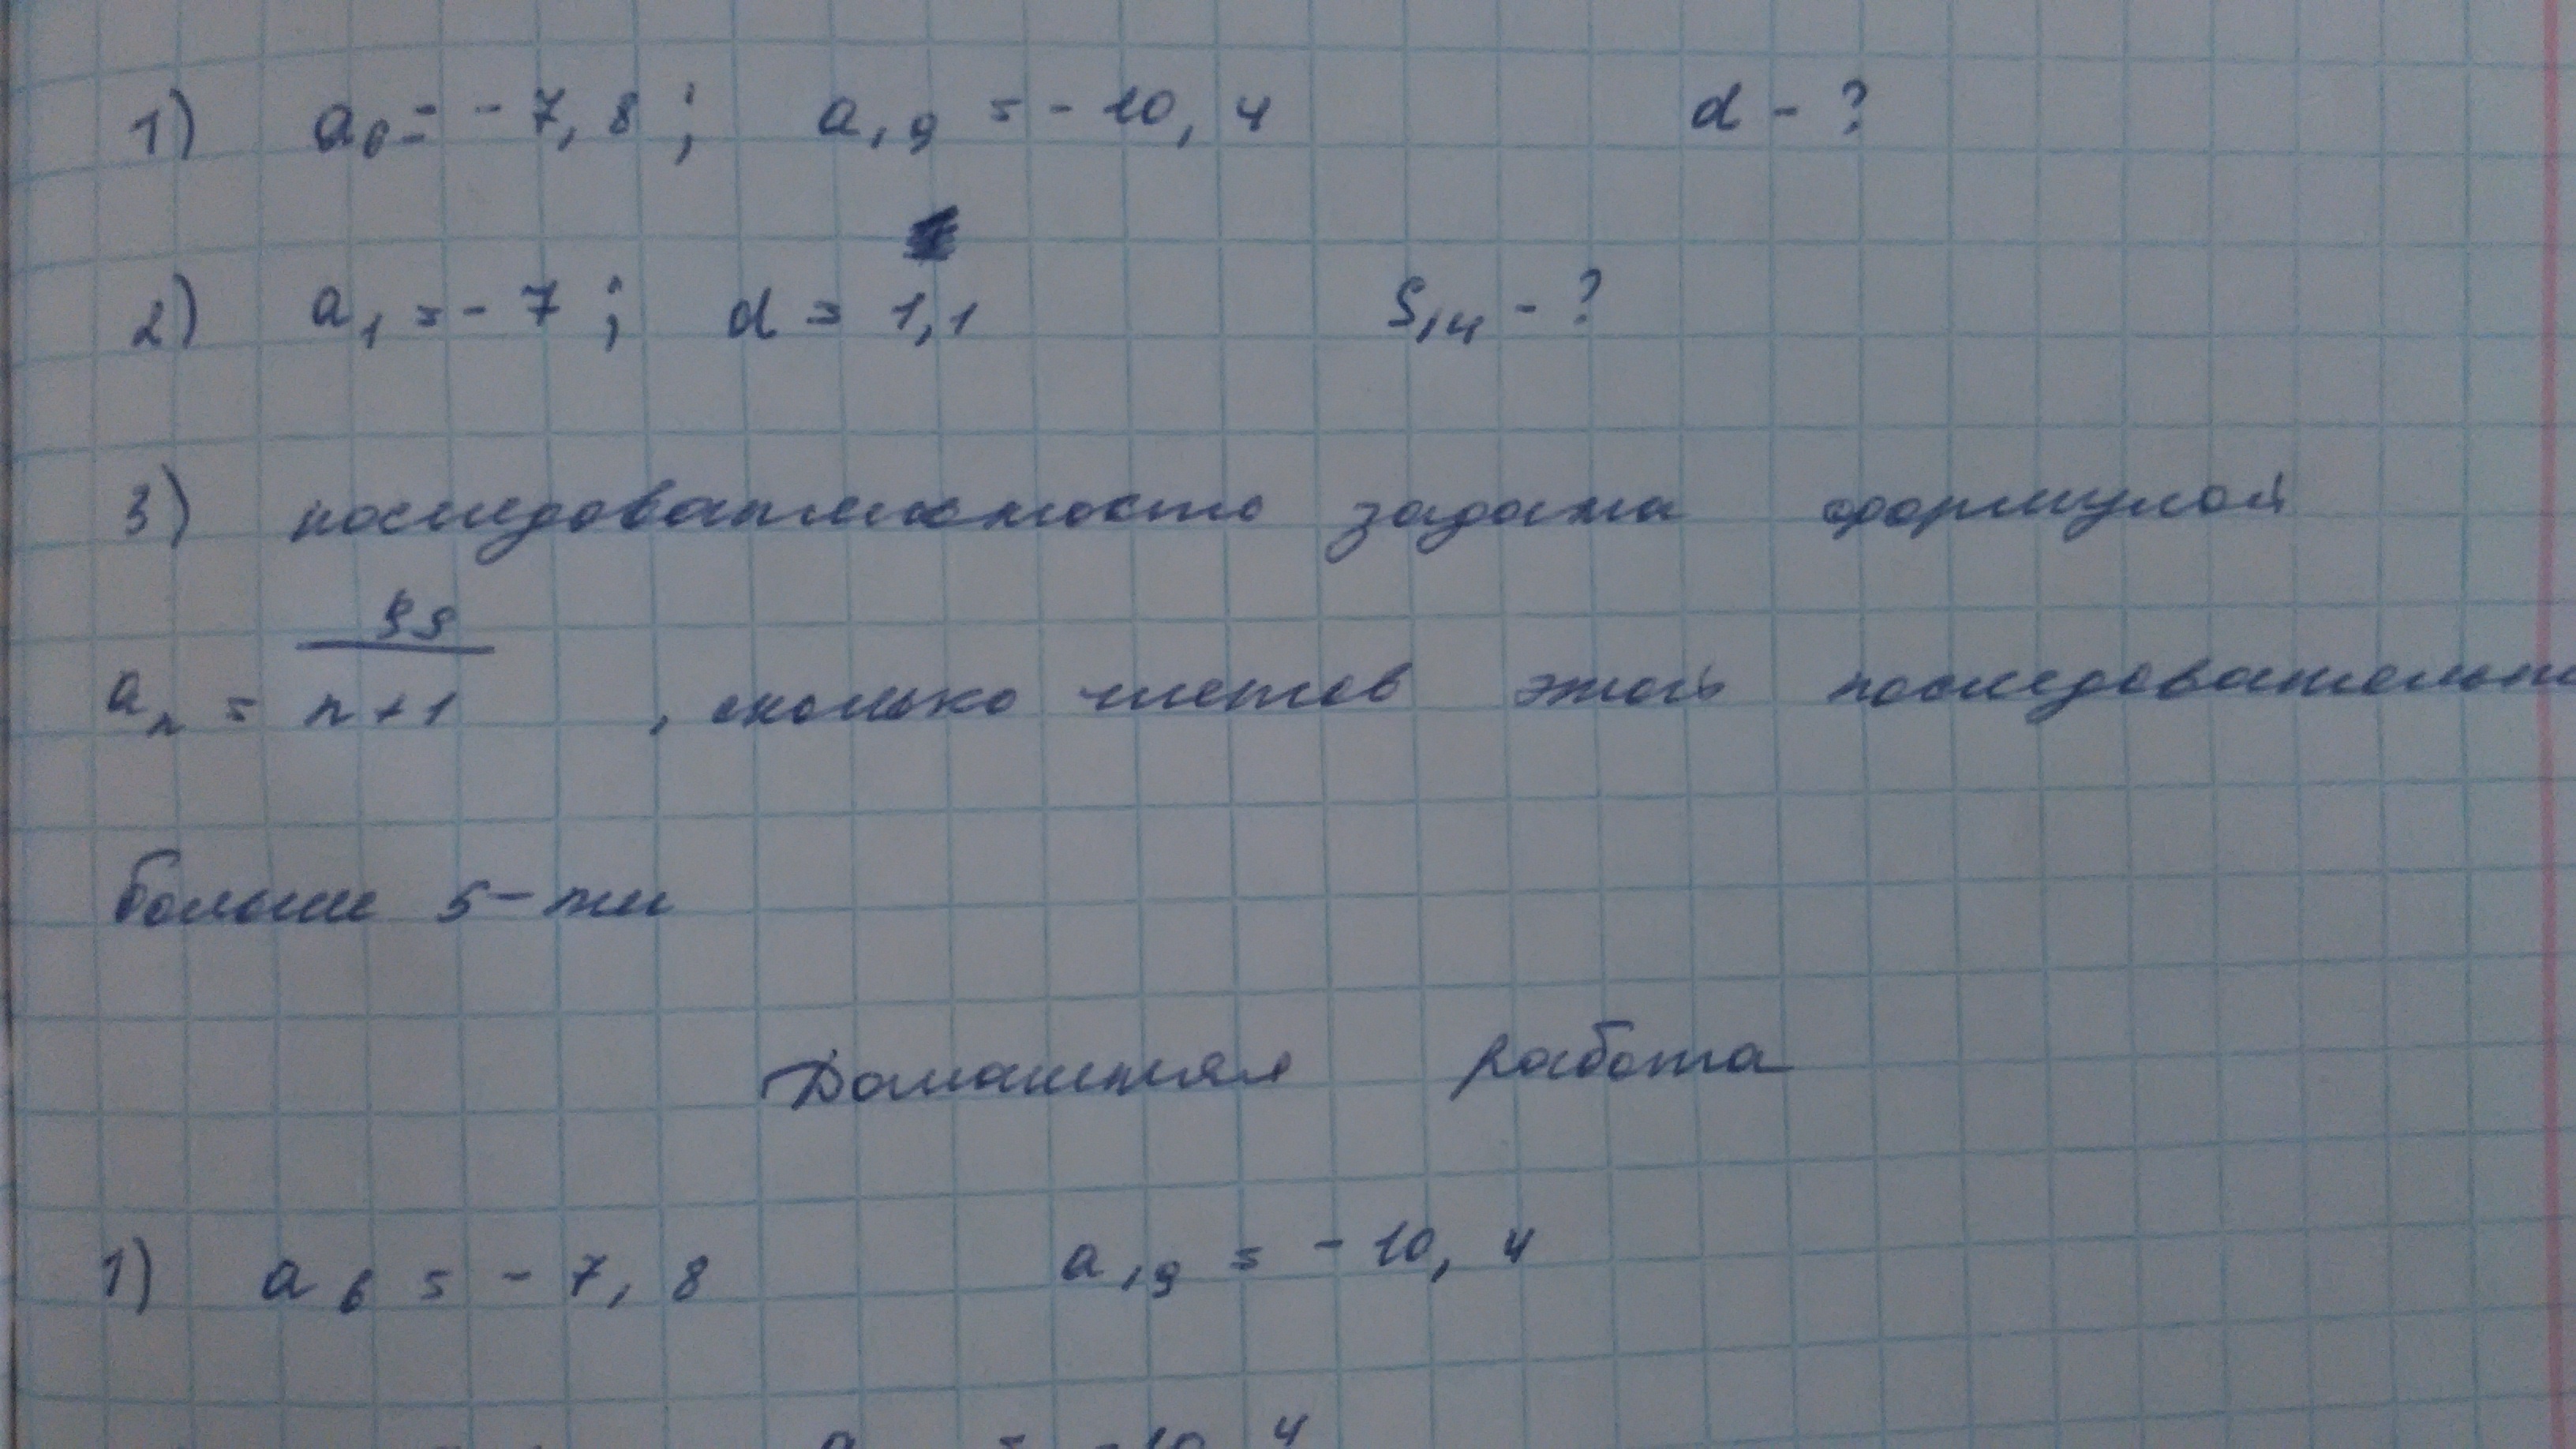 1) a₆ = - 7,8 ; a₁₉ = - 10,4 d - ?
2) a₁ = - 7 ; d = 1,1 S₁₄ - ?
3) последовательность задана формулой
aₙ = 99/(n+1) , сколько членов этой последовательн
больше 5-ти
Домашняя работа
1) a₆ = - 7,8 a₁₉ = - 10,4